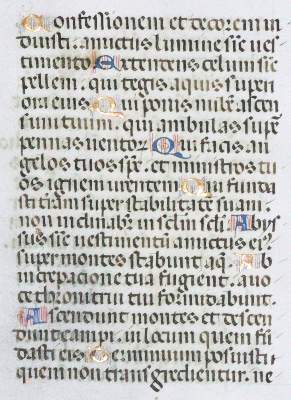 Confessionem et decorem in
duisti. amictus lumine sic ves
timento Extendens celum sic
pellem. qui tegis aquis superi
ora eius Qui ponis nube ascen
sum tuum. qui ambulas supe
pennas uentor Qui facis an
gelos tuos spe. et ministros tu
os ignem urentem Qui funda
sti tram super stabilitate suam.
non inclinabr in sclm scli Abys
sus sic uestimentu amictus ei
super montes stabunt aq Ab
increpatione tua fugient. auo
ce thronitrui tui formidabunt.
Ascendunt montes et descen
dunt campi. in locum quem fu
dasti eis Terminum posuisti
quem non transgredientur. ne